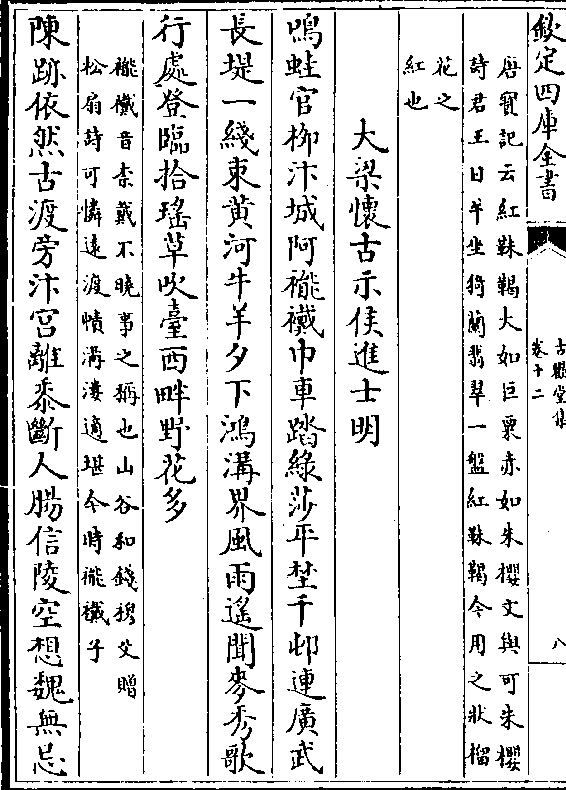 欽定四庫全書
古歡堂集
卷十二
八
唐寶記云紅靺鞨大如巨栗赤如朱櫻文與可朱櫻
詩君王日午坐猗蘭翡翠一盤紅靺鞨今用之狀榴
花之
紅也
大梁懷古示侯進士明
鳴蛙官柳汴城阿䙰襶巾車踏綠莎平埜千邨連廣武
長堤一綫束黃河牛羊夕下鴻溝界風雨遙聞麥秀歌
行處登臨拾瑤草吹臺西畔野花多
䙰襶音柰戴不曉事之稱也山谷和錢穆父贈
松扇詩可憐遠渡幘溝漊適堪今時䙰襶子
陳跡依然古渡旁汴宮離黍斷人腸信陵空想魏無忌